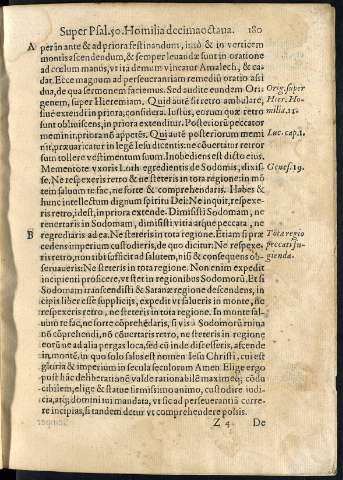 Super Psal.50. Homilia decimaoctaua. 180
A per in ante & ad priora festinandum, imò & in verticem
montis ascendendum, & semper leuandæ sunt in oratione
ad cœlum manus, vt ita demum vincatur Amalech, & ca-
dat. Ecce magnum ad perseuerantiam remediũ oratio assi
dua, de qua sermonem facienus. Sed audite eundem Ori
genem, super Hieremiam. Quid autẽ sit retro ambulare,
siue extendi in priora, considera. Iustus, eorum quæ retro
sunt obliuiscens, in priora extenditur. Posteriorũ peccator
meminit, priora nõ appetẽs. Qui autẽ posteriorum memi
nit, præuaricatur in legẽ Iesu dicentis: ne cõuertatur retror
sum tollere vestimentum suum. Inobediens est dicto eius,
Mementote vxoris Loth egredientis de Sodomis, dixis-
se. Ne respexeris retro & ne steteris in tota regione: in mõ
tem saluũ te fac, ne forte & comprehendaris. Habes &
hunc intellectum dignum spiritu Dei: Ne inquit, respexe-
ris retro, id est, in priora extende. Dimisisti Sodomam, ne
reuertaris in Sodomam, dimisisti vitia atque peccata, ne
B regrediaris ad ea. Ne steteris in tota regione. Etiam si præ
cedens imperium custodieris, de quo dicitur. Ne respexe-
ris retro, non tibi sufficit ad salutem, nisi & consequens ob-
seruaueris: Ne steteris in tota regione. Non enim expedit
incipienti proficere, vt stet in regionibus Sodomorũ. Et si
Sodomam transcendisti & Satanæ regione descendens, in
cipis liber esse supplicijs, expedit vt salueris in monte, ne
respexeris retro, ne steteris in tota regione. In monte sal-
uum te fac, ne forte cõprehẽdaris, si vis à Sodomorũ ruina
nõ cõprehẽdi, ne cõuertaris retro, ne steteris in regione
eorũ neque ad alia pergas loca, sed cũ inde discesseris, ascende
in montẽ, in quo solo salus est nomen Iesu Christi, cui est
gloria & imperium in secula seculorum Amen. Elige ergo
post hãc deliberationẽ valde rationabilẽ maximeq́; cõdu
cibilem, elige & statue firmissimo animo, custodire iudi-
cia, atq́; domini tui mandata, vt sic ad perseuerantiã curre-
re incipias, si tandem detur vt comprehendere possis.
Z 4 De
Orig. super
Hier. Ho-
milia.13.
Luc. cap.1.
Genes.19.
Tota regio
peccati fu-
gienda.